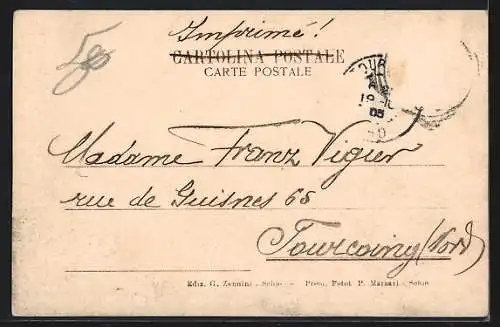 Imprimé!
50
CARTOLINA POSTALE
CARTE POSTALE
TOUR
05
Madame Franz Vigier
rue de Guisnes 65
Tourcoing (Nord)
Ediz. G. Zannini - Schio - Prem. Fotot. P. Marzari - Schio